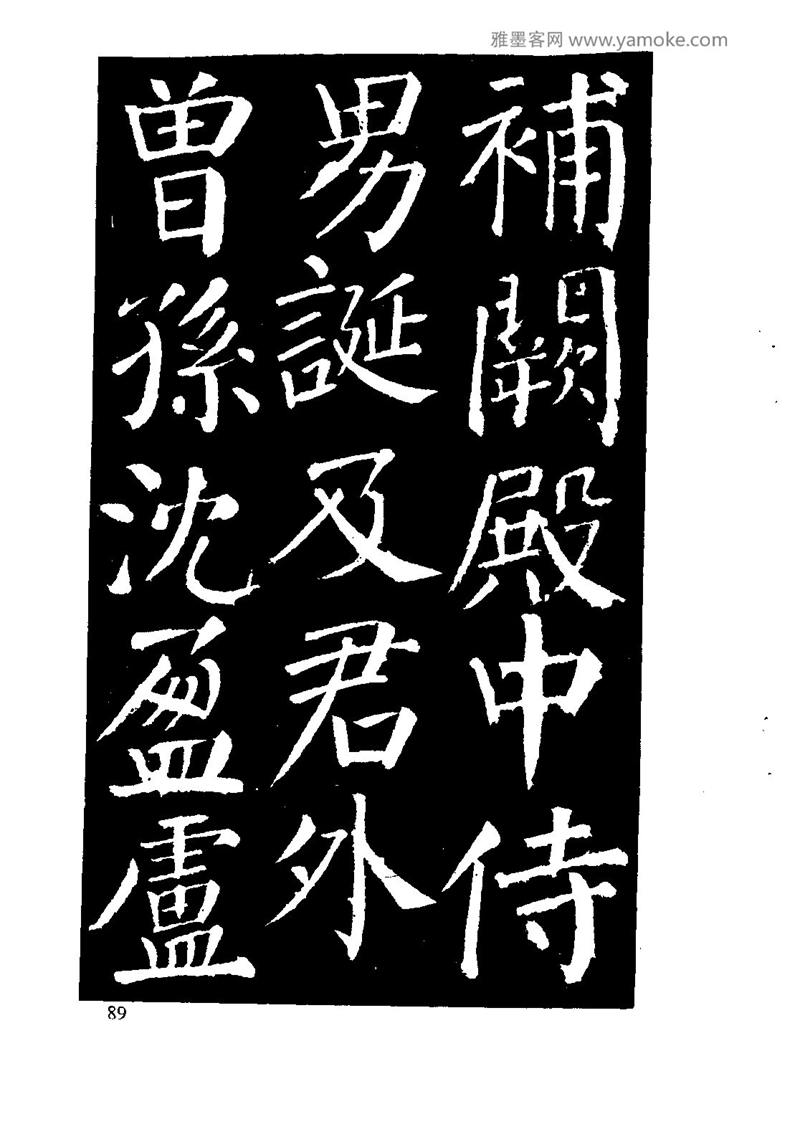 雅墨客网 www.yamoke.com
補闕殿中侍
男誕及君外
曾孫沈盈盧
89